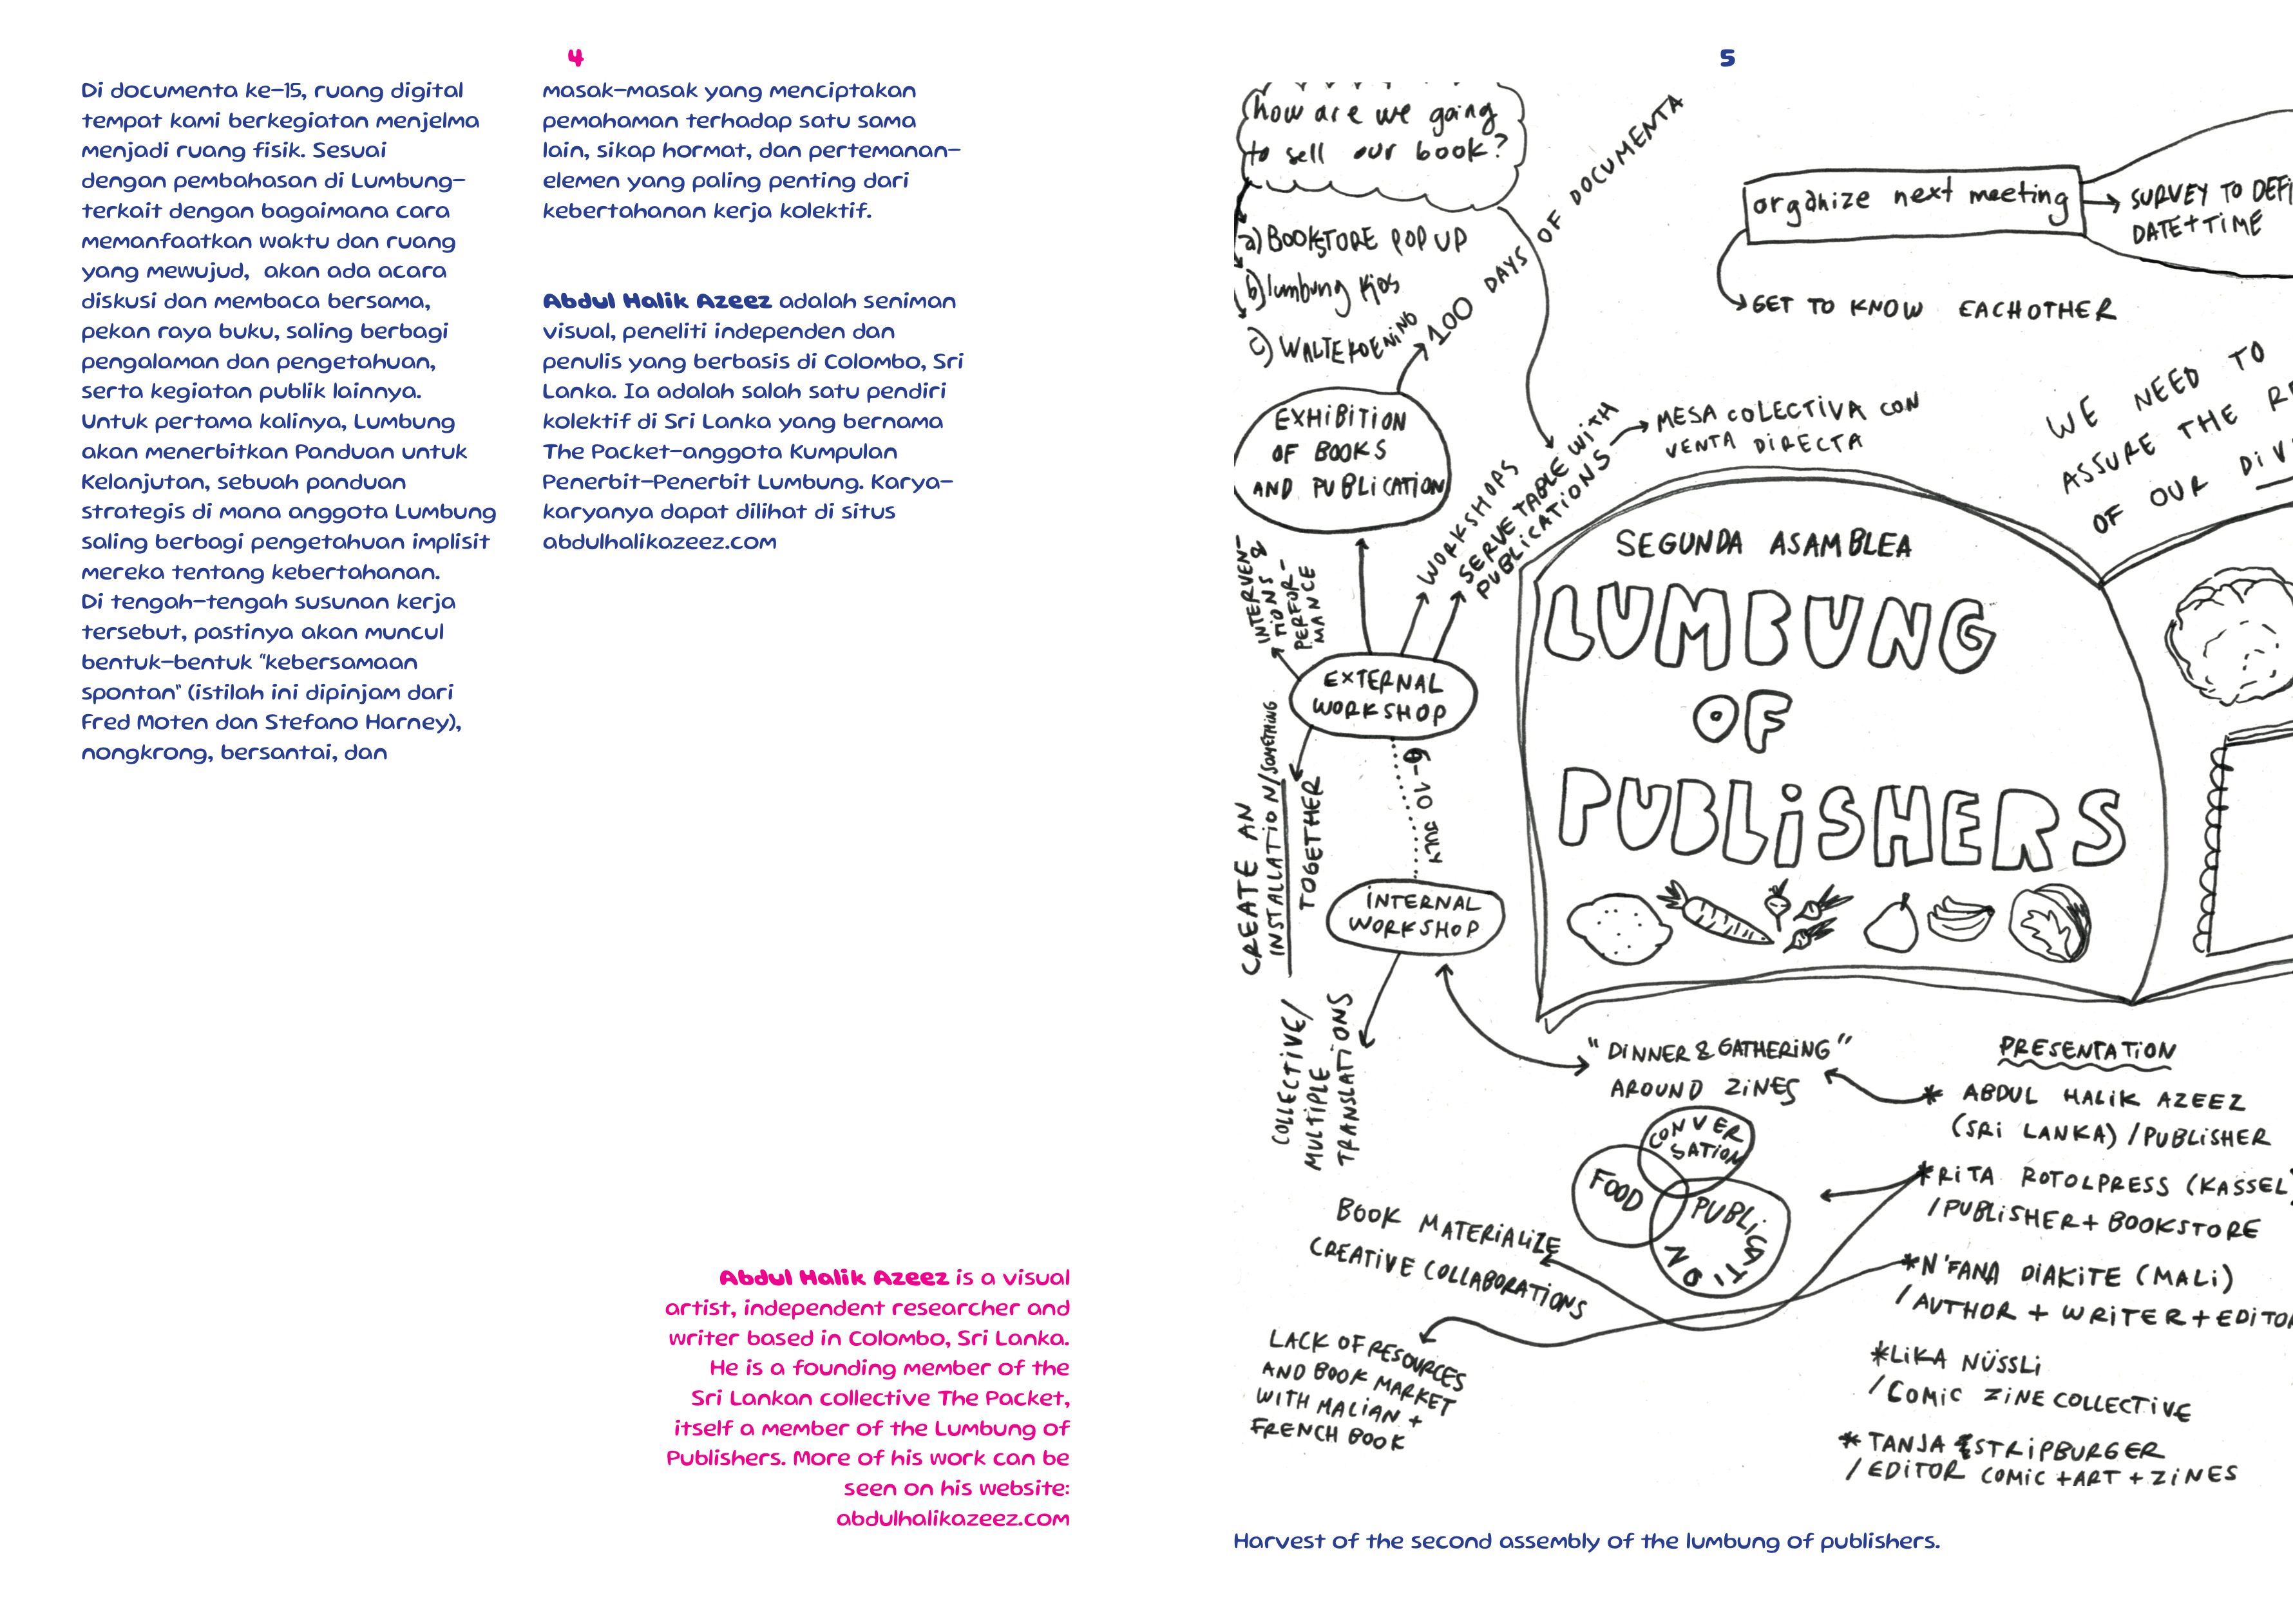 4
Di documenta ke-15, ruang digital
tempat kami berkegiatan menjelma
menjadi ruang fisik. Sesuai
dengan pembahasan di Lumbung-
terkait dengan bagaimana cara
memanfaatkan waktu dan ruang
yang mewujud, akan ada acara
diskusi dan membaca bersama,
pekan raya buku, saling berbagi
pengalaman dan pengetahuan,
serta kegiatan publik lainnya.
Untuk pertama kalinya, Lumbung
akan menerbitkan Panduan untuk
Kelanjutan, sebuah panduan
strategis di mana anggota Lumbung
saling berbagi pengetahuan implisit
mereka tentang kebertahanan.
Di tengah-tengah susunan kerja
tersebut, pastinya akan muncul
bentuk-bentuk "kebersamaan
spontan" (istilah ini dipinjam dari
Fred Moten dan Stefano Harney),
nongkrong, bersantai, dan
masak-masak yang menciptakan
pemahaman terhadap satu sama
lain, sikap hormat, dan pertemanan-
elemen yang paling penting dari
kebertahanan kerja kolektif.
Abdul Halik Azeez adalah seniman
visual, peneliti independen dan
penulis yang berbasis di Colombo, Sri
Lanka. Ia adalah salah satu pendiri
kolektif di Sri Lanka yang bernama
The Packet-anggota Kumpulan
Penerbit-Penerbit Lumbung. Karya-
karyanya dapat dilihat di situs
abdulhalikazeez.com
Abdul Halik Azeez is a visual
artist, independent researcher and
writer based in Colombo, Sri Lanka.
He is a founding member of the
Sri Lankan collective The Packet,
itself a member of the Lumbung of
Publishers. More of his work can be
seen on his website:
abdulhalikazeez.com
5
how are we going
to sell our book?
a) BOOKSTORE POP UP
b) lumbung Kios
c) WALTEKOENING
100 DAYS OF DOCUMENTA
organize next meeting
SURVEY TO DEFI
DATE+TIME
GET TO KNOW EACHOTHER
WE NEED TO
ASSURE THE R
OF OUR DIV
EXHIBITION
OF BOOKS
AND PUBLICATION
WORKSHOPS
SERVE TABLE WITH
PUBLICATIONS
MESA COLECTIVA CON
VENTA DIRECTA
INTERVEN-
TIONS &
PERFOR-
MANCE
EXTERNAL
WORKSHOP
CREATE AN
INSTALLATION/SOMETHING
TOGETHER
6-10 JULY
INTERNAL
WORKSHOP
COLLECTIVE/
MULTIPLE
TRANSLATIONS
SEGUNDA ASAMBLEA
LUMBUNG
OF
PUBLISHERS
"DINNER & GATHERING"
AROUND ZINES
CONVER
SATION
FOOD
PUBLICATION
BOOK MATERIALIZE
CREATIVE COLLABORATIONS
LACK OF RESOURCES
AND BOOK MARKET
WITH MALIAN +
FRENCH BOOK
PRESENTATION
* ABDUL HALIK AZEEZ
(SRI LANKA) / PUBLISHER
* RITA ROTOLPRESS (KASSEL)
/ PUBLISHER + BOOKSTORE
* N'FANA DIAKITE (MALI)
/ AUTHOR + WRITER + EDITOR
* LIKA NÜSSLI
/ COMIC ZINE COLLECTIVE
* TANJA STRIPBURGER
/ EDITOR COMIC + ART + ZINES
Harvest of the second assembly of the lumbung of publishers.